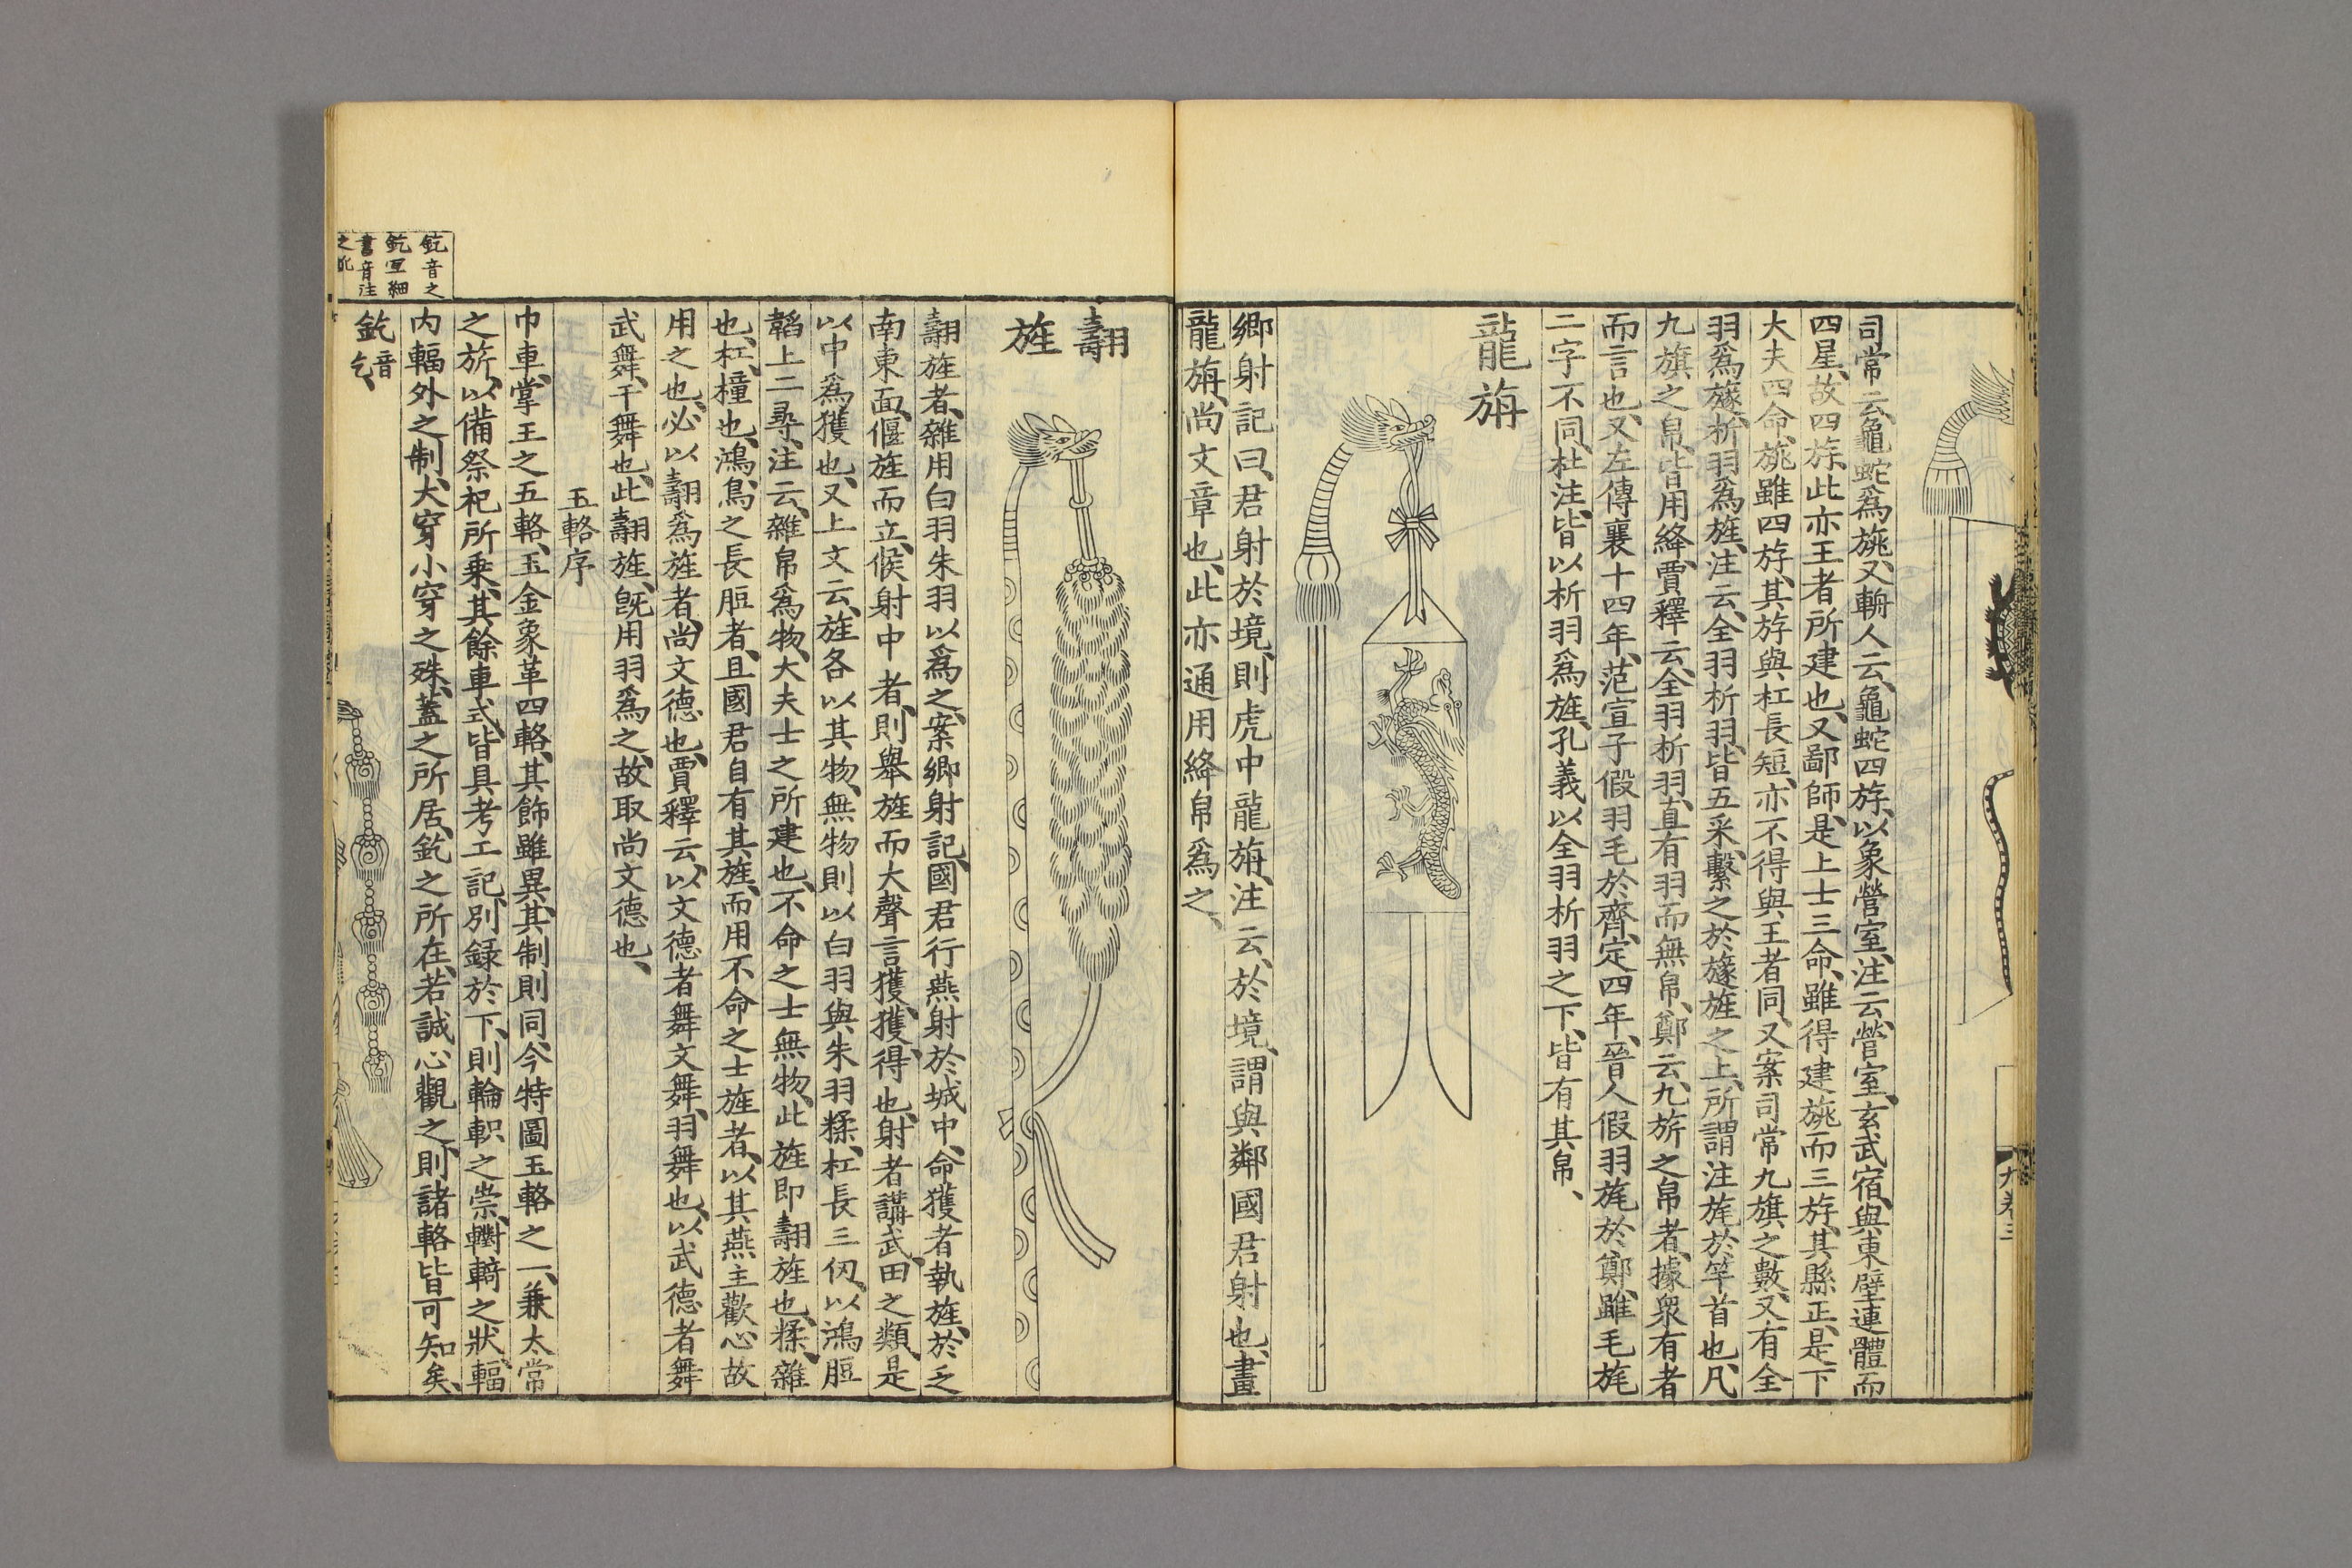 司常云、龜蛇爲旐、又輈人云、龜蛇四斿、以象營室、注云、營室、玄武宿、與東壁連體而
四星、故四斿、此亦王者所建也、又鄙師、是上士三命、雖得建旐而三斿、其縣正、是下
大夫四命、旐雖四斿、其斿與杠長短、亦不得與王者同、又案司常九旗之數、又有全
羽爲旞、析羽爲旌、注云、全羽析羽、皆五采、繫之於旞旌之上、所謂注旄於竿首也、凡
九旗之帛、皆用絳、賈釋云、全羽析羽、直有羽而無帛、鄭云、九旂之帛者、據衆有者
而言也、又左傳襄十四年、范宣子假羽毛於齊、定四年、晉人假羽旄於鄭、雖毛旄
二字不同、杜注、皆以析羽爲旌、孔義以全羽析羽之下、皆有其帛、
龍旜
鄉射記曰、君射於境、則虎中龍旜、注云、於境、謂與鄰國君射也、畫
龍旜、尚文章也、此亦通用絳帛爲之、
九卷三
翿
旌
翿旌者、雜用白羽朱羽以爲之、案鄉射記、國君行燕射於城中、命獲者執旌、於乏
南東面、偃旌而立、候射中者、則舉旌而大聲言獲、獲、得也、射者講武、田之類、是
以中爲獲也、又上文云、旌各以其物、無物則以白羽與朱羽糅、杠長三仞、以鴻脰
韜上二尋、注云、雜帛爲物、大夫士之所建也、不命之士無物、此旌即翿旌也、糅、雜
也、杠、橦也、鴻、鳥之長脰者、且國君自有其旌、而用不命之士旌者、以其燕主歡心故
用之也、必以翿爲旌者、尚文德也、賈釋云、以文德者舞文舞、羽舞也、以武德者舞
武舞、干舞也、此翿旌、旣用羽爲之、故取尚文德也、
玉輅序
巾車、掌王之五輅、玉金象革四輅、其飾雖異、其制則同、今特圖玉輅之一、兼太常
之旂、以備祭祀所乘、其餘車式、皆具考工記、別録於下、則輪軹之崇、轛輢之狀、輻
內輻外之制、大穿小穿之殊、蓋之所居、釳之所在、若誠心觀之、則諸輅皆可知矣、
釳音乞、
釳音之
釳宜細
書音注
之